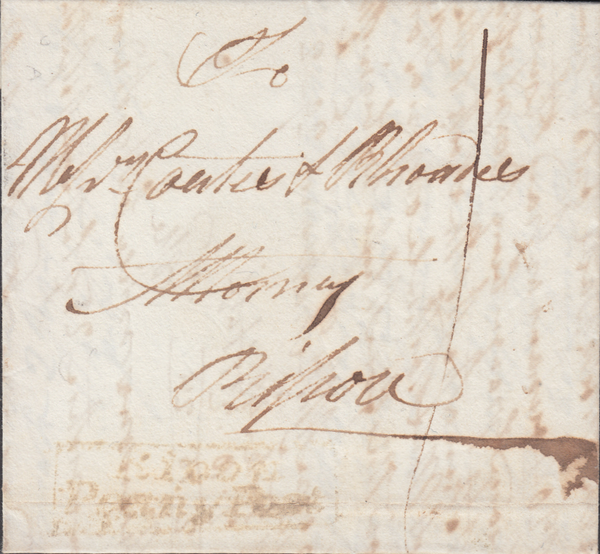 To
Messrs Coates & Rhoades
Attorney
Ripon
Penny Post